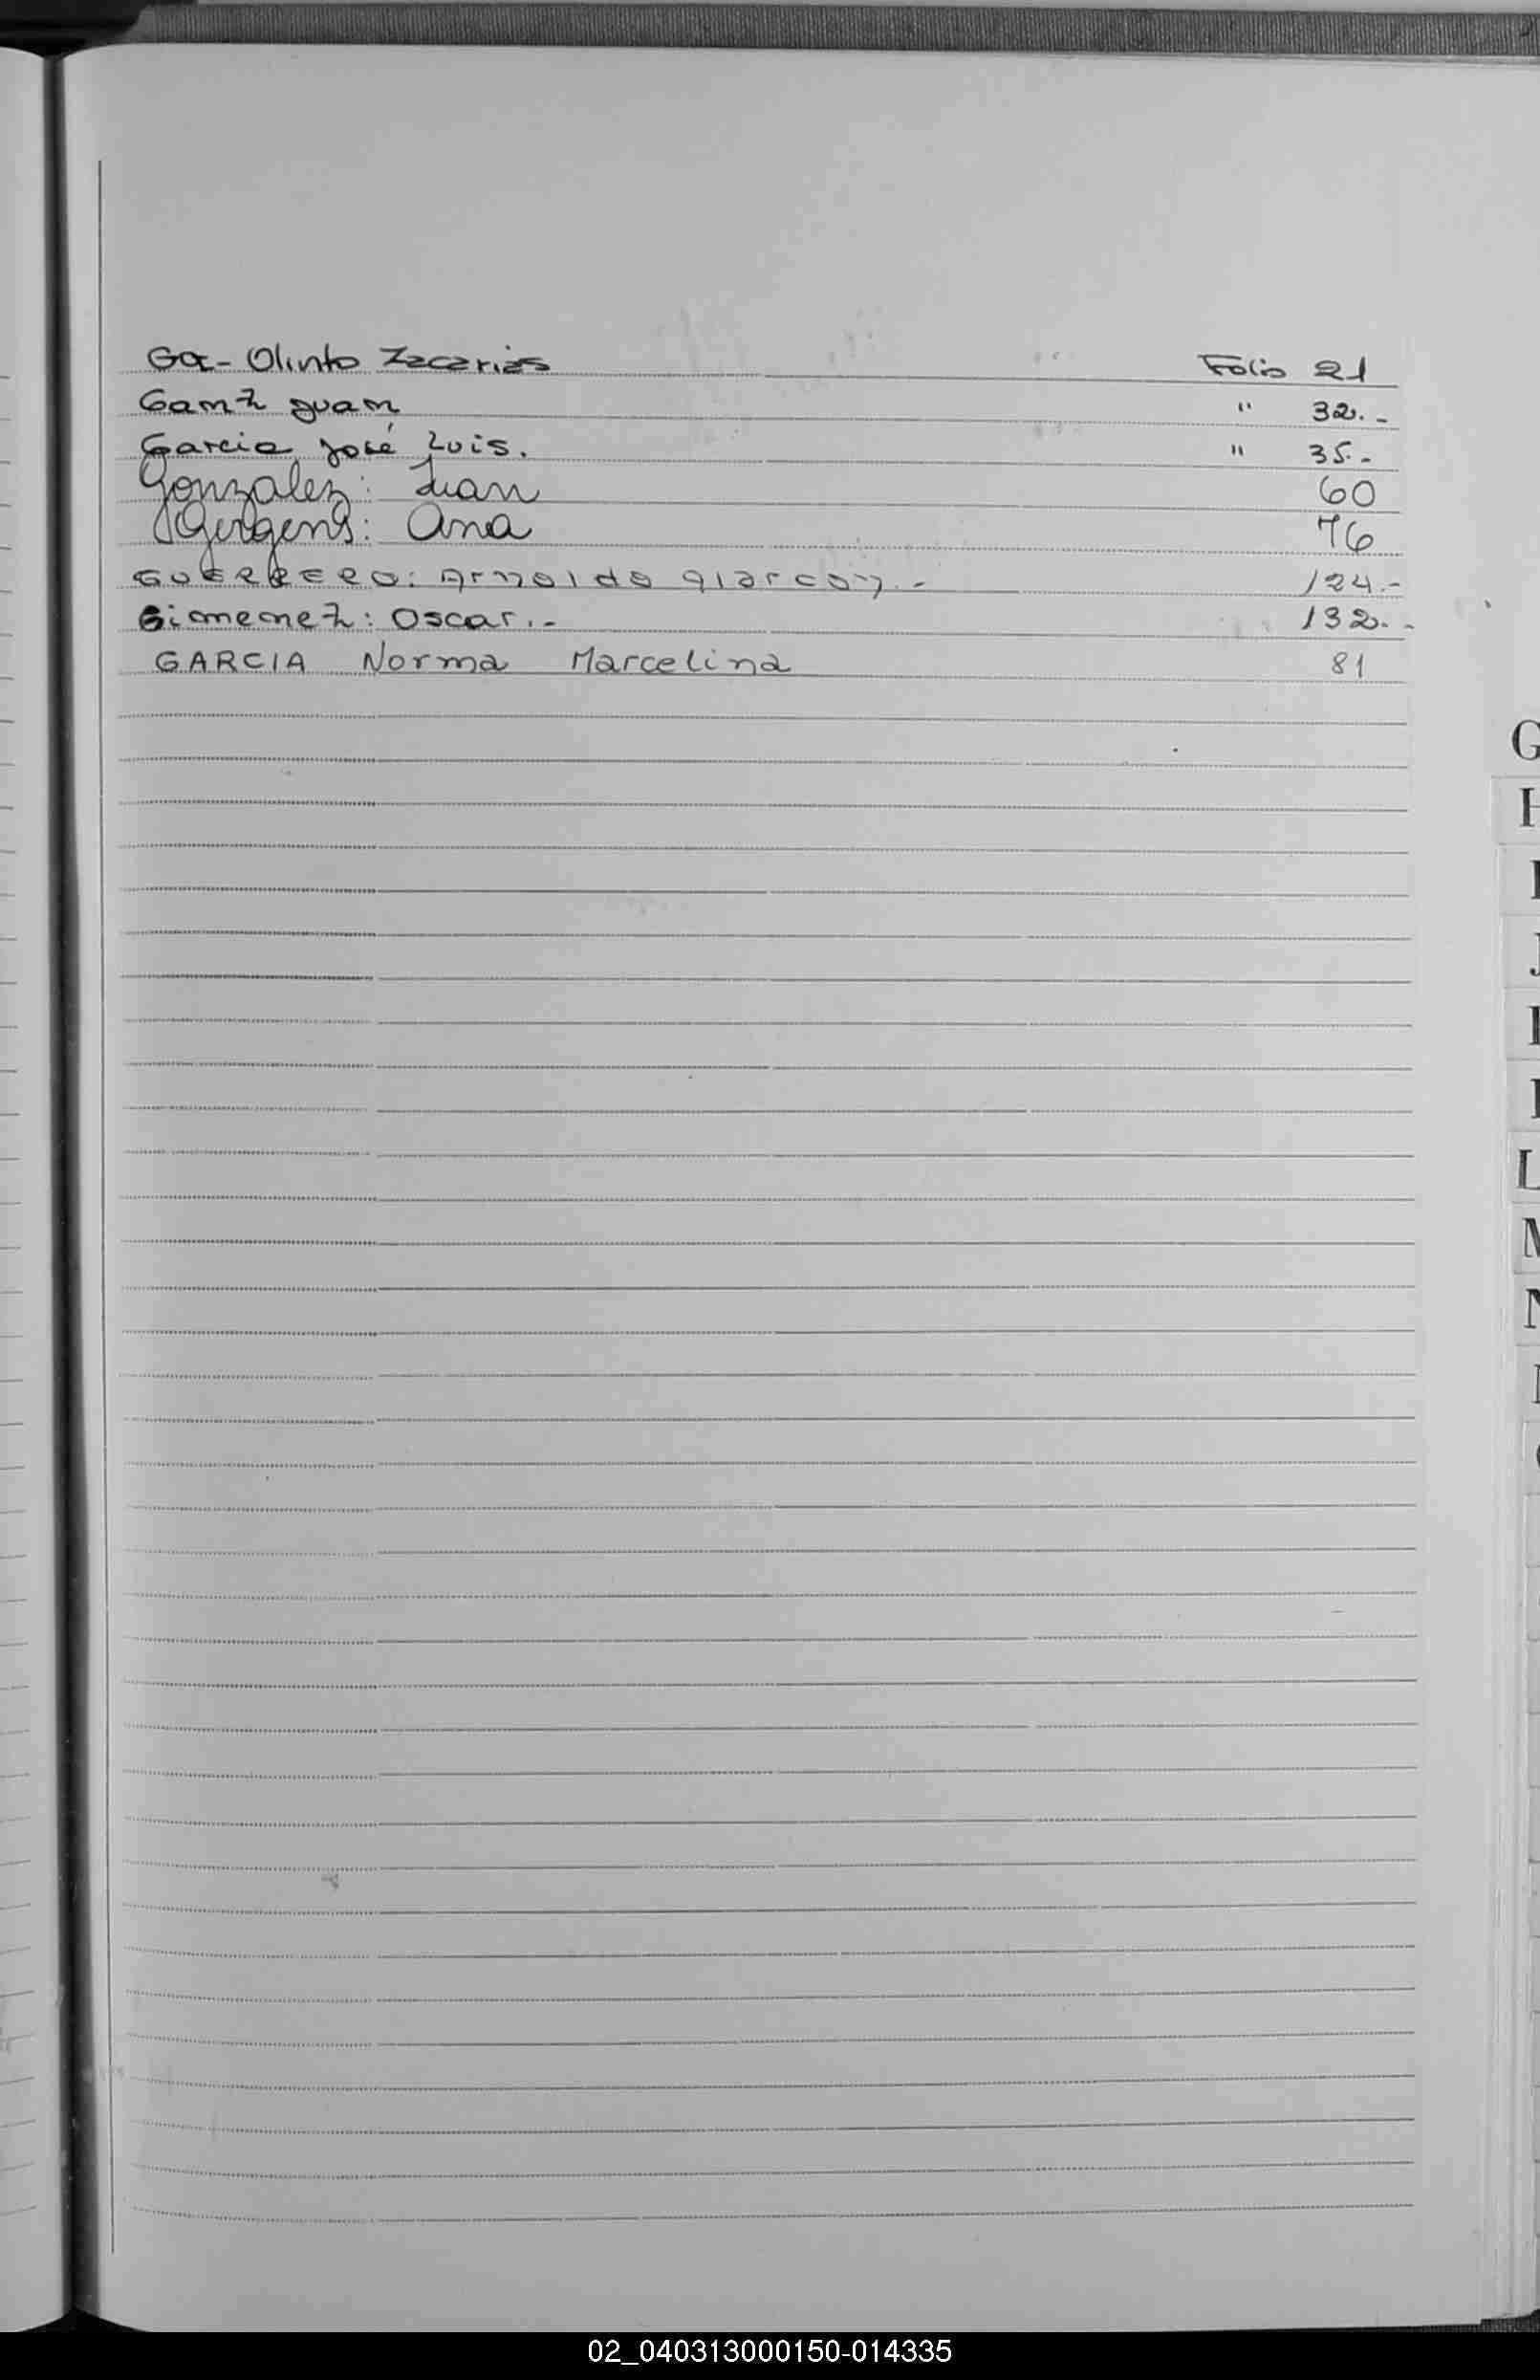 Ga- Olinto Zacarias Folio 21
Ganz Juan " 32.-
Garcia José Luis. " 35.-
Gonzalez: Juan 60
Gergens: Ana 76
GUERRERO: Arnoldo Alarcon.- 124.-
Gimenez: Oscar.- 132.-
GARCIA Norma Marcelina 81
G
H
I
J
L
M
N
02_040313000150-014335